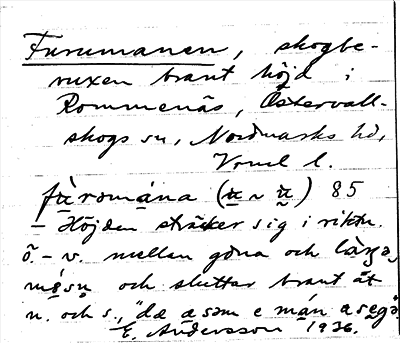 Furumanen, skogbe-
vuxen brant höjd i
Rommenäs, Östervall-
skogs sn, Nordmarks hd,
Vrml l.
fu̇romȧna (u ~ u) 85
– Höjden sträcker sig i riktn.
ö. – v. mellan gđna och
mo̊sn och sluttar brant åt
n. och s., "dæ a som e mån
E. Andersson 1936.